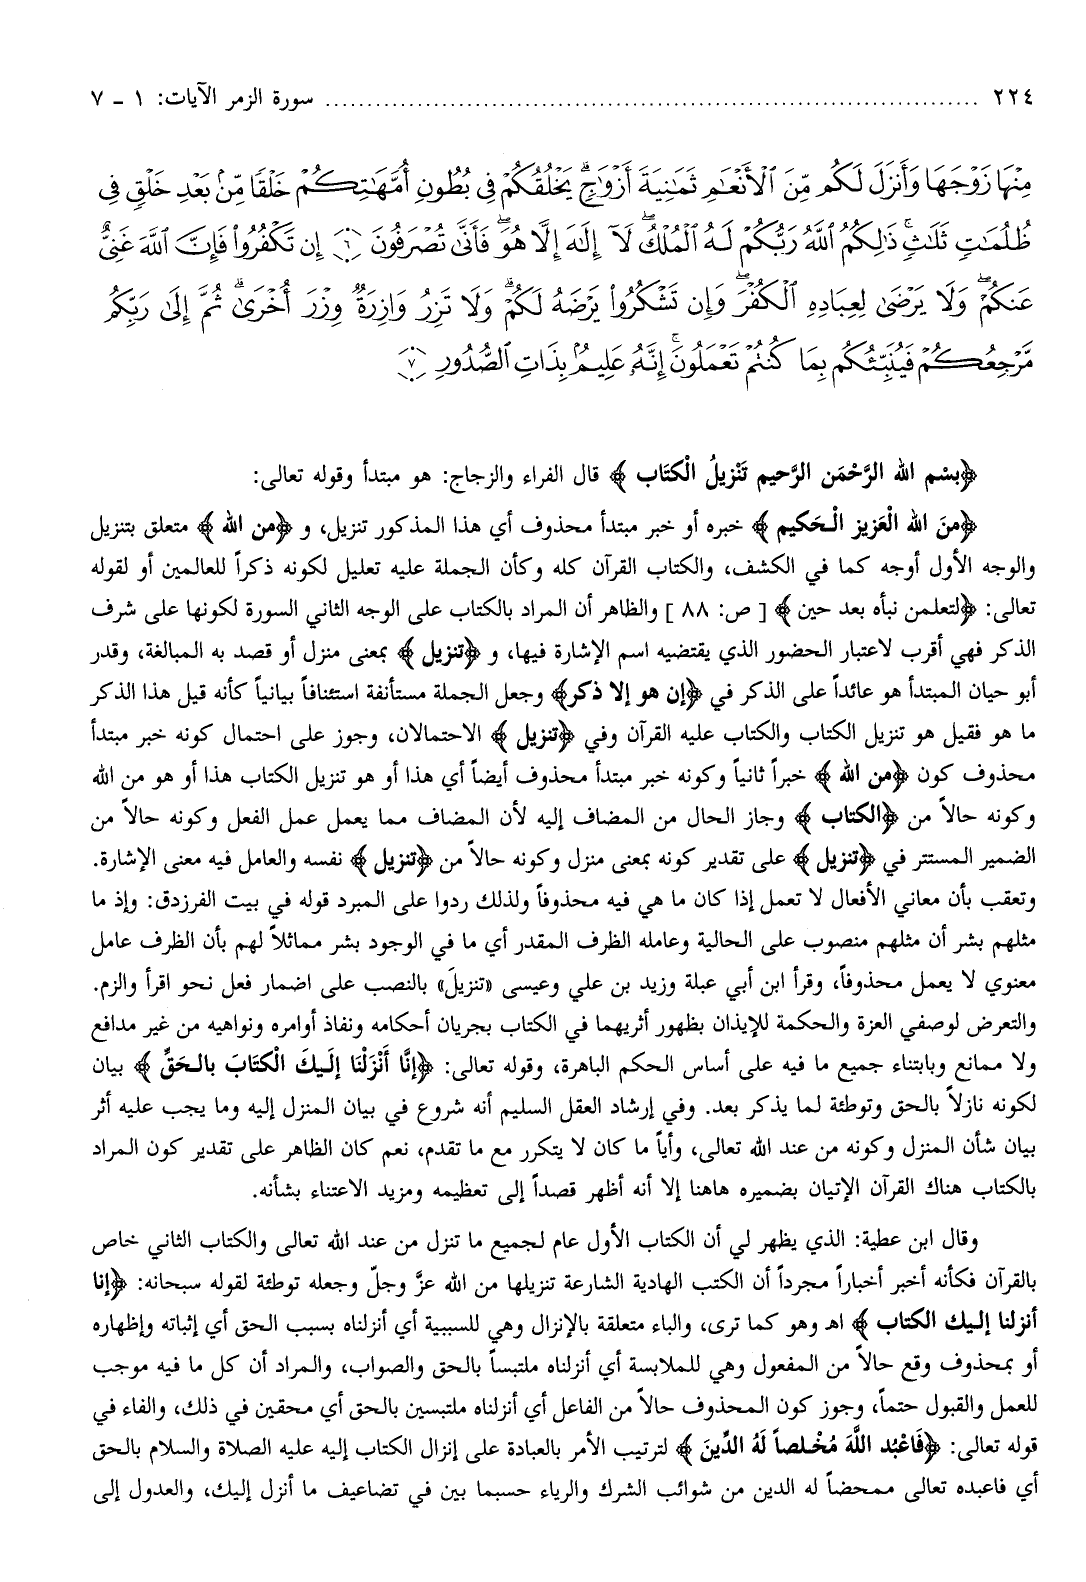 ٢٢٤ ........................................................ سورة الزمر الآيات: ١ - ٧
مِنْهَا زَوْجَهَا وَأَنزَلَ لَكُم مِّنَ ٱلْأَنْعَٰمِ ثَمَٰنِيَةَ أَزْوَٰجٍ ۚ يَخْلُقُكُمْ فِى بُطُونِ أُمَّهَٰتِكُمْ خَلْقًا مِّنۢ بَعْدِ خَلْقٍ فِى
ظُلُمَٰتٍ ثَلَٰثٍ ۚ ذَٰلِكُمُ ٱللَّهُ رَبُّكُمْ لَهُ ٱلْمُلْكُ ۖ لَآ إِلَٰهَ إِلَّا هُوَ ۖ فَأَنَّىٰ تُصْرَفُونَ ﴿٦﴾ إِن تَكْفُرُوا۟ فَإِنَّ ٱللَّهَ غَنِىٌّ
عَنكُمْ ۖ وَلَا يَرْضَىٰ لِعِبَادِهِ ٱلْكُفْرَ ۖ وَإِن تَشْكُرُوا۟ يَرْضَهُ لَكُمْ ۗ وَلَا تَزِرُ وَازِرَةٌ وِزْرَ أُخْرَىٰ ۗ ثُمَّ إِلَىٰ رَبِّكُم
مَّرْجِعُكُمْ فَيُنَبِّئُكُم بِمَا كُنتُمْ تَعْمَلُونَ ۚ إِنَّهُۥ عَلِيمٌۢ بِذَاتِ ٱلصُّدُورِ ﴿٧﴾
﴿بِسْمِ الله الرَّحْمَنِ الرَّحيمِ تَنْزِيلُ الْكتَابِ﴾ قال الفراء والزجاج: هو مبتدأ وقوله تعالى:
﴿مِنَ الله الْعَزيزِ الْحَكيمِ﴾ خبره أو خبر مبتدأ محذوف أي هذا المذكور تنزيل، و ﴿من الله﴾ متعلق بتنزيل
والوجه الأول أوجه كما في الكشف، والكتاب القرآن كله وكأن الجملة عليه تعليل لكونه ذكراً للعالمين أو لقوله
تعالى: ﴿لتعلمن نبأه بعد حين﴾ [ ص: ٨٨ ] والظاهر أن المراد بالكتاب على الوجه الثاني السورة لكونها على شرف
الذكر فهي أقرب لاعتبار الحضور الذي يقتضيه اسم الإشارة فيها، و ﴿تنزيل﴾ بمعنى منزل أو قصد به المبالغة، وقدر
أبو حيان المبتدأ هو عائداً على الذكر في ﴿إن هو إلا ذكر﴾ وجعل الجملة مستأنفة استئنافاً بيانياً كأنه قيل هذا الذكر
ما هو فقيل هو تنزيل الكتاب والكتاب عليه القرآن وفي ﴿تنزيل﴾ الاحتمالان، وجوز على احتمال كونه خبر مبتدأ
محذوف كون ﴿من الله﴾ خبراً ثانياً وكونه خبر مبتدأ محذوف أيضاً أي هذا أو هو تنزيل الكتاب هذا أو هو من الله
وكونه حالاً من ﴿الكتاب﴾ وجاز الحال من المضاف إليه لأن المضاف مما يعمل عمل الفعل وكونه حالاً من
الضمير المستتر في ﴿تنزيل﴾ على تقدير كونه بمعنى منزل وكونه حالاً من ﴿تنزيل﴾ نفسه والعامل فيه معنى الإشارة.
وتعقب بأن معاني الأفعال لا تعمل إذا كان ما هي فيه محذوفاً ولذلك ردوا على المبرد قوله في بيت الفرزدق: وإذ ما
مثلهم بشر أن مثلهم منصوب على الحالية وعامله الظرف المقدر أي ما في الوجود بشر مماثلاً لهم بأن الظرف عامل
معنوي لا يعمل محذوفاً، وقرأ ابن أبي عبلة وزيد بن علي وعيسى «تنزيلَ» بالنصب على اضمار فعل نحو اقرأ والزم.
والتعرض لوصفي العزة والحكمة للإيذان بظهور أثريهما في الكتاب بجريان أحكامه ونفاذ أوامره ونواهيه من غير مدافع
ولا ممانع وبابتناء جميع ما فيه على أساس الحكم الباهرة، وقوله تعالى: ﴿إنَّا أَنْزَلْنَا إلَيكَ الْكتَابَ بالحَقِّ﴾ بيان
لكونه نازلاً بالحق وتوطئة لما يذكر بعد. وفي إرشاد العقل السليم أنه شروع في بيان المنزل إليه وما يجب عليه أثر
بيان شأن المنزل وكونه من عند الله تعالى، وأياً ما كان لا يتكرر مع ما تقدم، نعم كان الظاهر على تقدير كون المراد
بالكتاب هناك القرآن الإتيان بضميره هاهنا إلا أنه أظهر قصداً إلى تعظيمه ومزيد الاعتناء بشأنه.
وقال ابن عطية: الذي يظهر لي أن الكتاب الأول عام لجميع ما تنزل من عند الله تعالى والكتاب الثاني خاص
بالقرآن فكأنه أخبر أخباراً مجرداً أن الكتب الهادية الشارعة تنزيلها من الله عزَّ وجلّ وجعله توطئة لقوله سبحانه: ﴿إنا
أنزلنا إليك الكتاب﴾ اهـ وهو كما ترى، والباء متعلقة بالإنزال وهي للسببية أي أنزلناه بسبب الحق أي إثباته وإظهاره
أو بمحذوف وقع حالاً من المفعول وهي للملابسة أي أنزلناه ملتبساً بالحق والصواب، والمراد أن كل ما فيه موجب
للعمل والقبول حتماً، وجوز كون المحذوف حالاً من الفاعل أي أنزلناه ملتبسين بالحق أي محقين في ذلك، والفاء في
قوله تعالى: ﴿فَاعْبُد اللَّهَ مُخْلصاً لَهُ الدِّينَ﴾ لترتيب الأمر بالعبادة على إنزال الكتاب إليه عليه الصلاة والسلام بالحق
أي فاعبده تعالى ممحضاً له الدين من شوائب الشرك والرياء حسبما بين في تضاعيف ما أنزل إليك، والعدول إلى